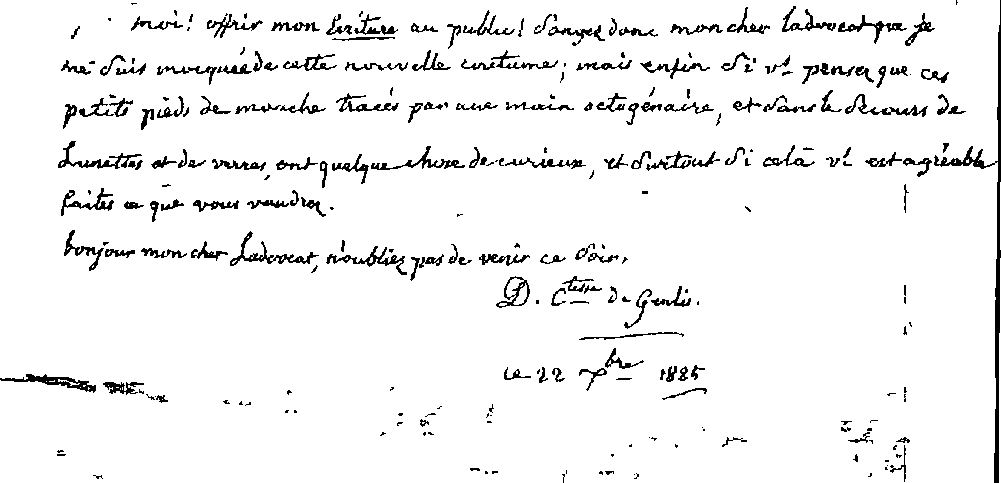 moi! offrir mon écriture au public! songez donc mon cher ladvocat que je
me suis moquée de cette nouvelle coutume; mais enfin si vs. pensez que ces
petits pieds de mouche tracés par une main octogénaire, et sans le secours de
Lunettes et de verres, ont quelque chose de curieux, et surtout si celà vs. est agréable
faites ce que vous voudrez.
bonjour mon cher Ladvocat, n'oubliez pas de venir ce soir,
D. Ctesse de Genlis.
ce 22 7bre 1825